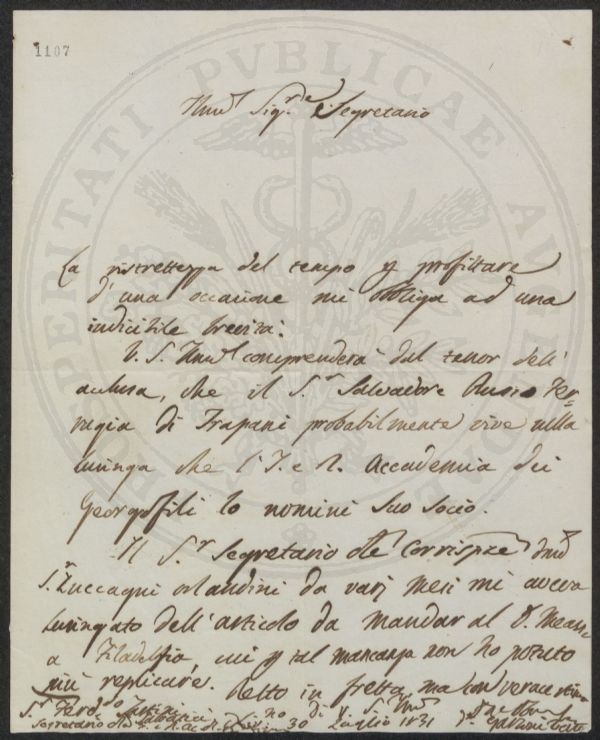 1107
PROSPERITATI PVBLICAE AVGENDAE
Illmo Sigr.e Segretario
La ristrettezza del tempo p profittare
d'una occasione mi obbliga ad una
indicibile brevità:
V. S. Illma comprenderà dal tenor dell'
acclusa, che il S.r Salvadore Russo Fer-
rugia di Trapani probabilmente vive nella
lusinga che l'I. e R. Accademia dei
Georgofili lo nomini suo socio.
Il S.r Segretario delle Corrispze
S.r Zuccagni Orlandini da varj mesi mi aveva
lusingato dell'articolo da mandar al D. Mease
a Filadelfia, cui p tal mancanza non ho potuto
più replicare. Retto in fretta, ma con verace stima
S.r Ferd.o Tartini di V. S. Illma
Segretario 30 Luglio 1831